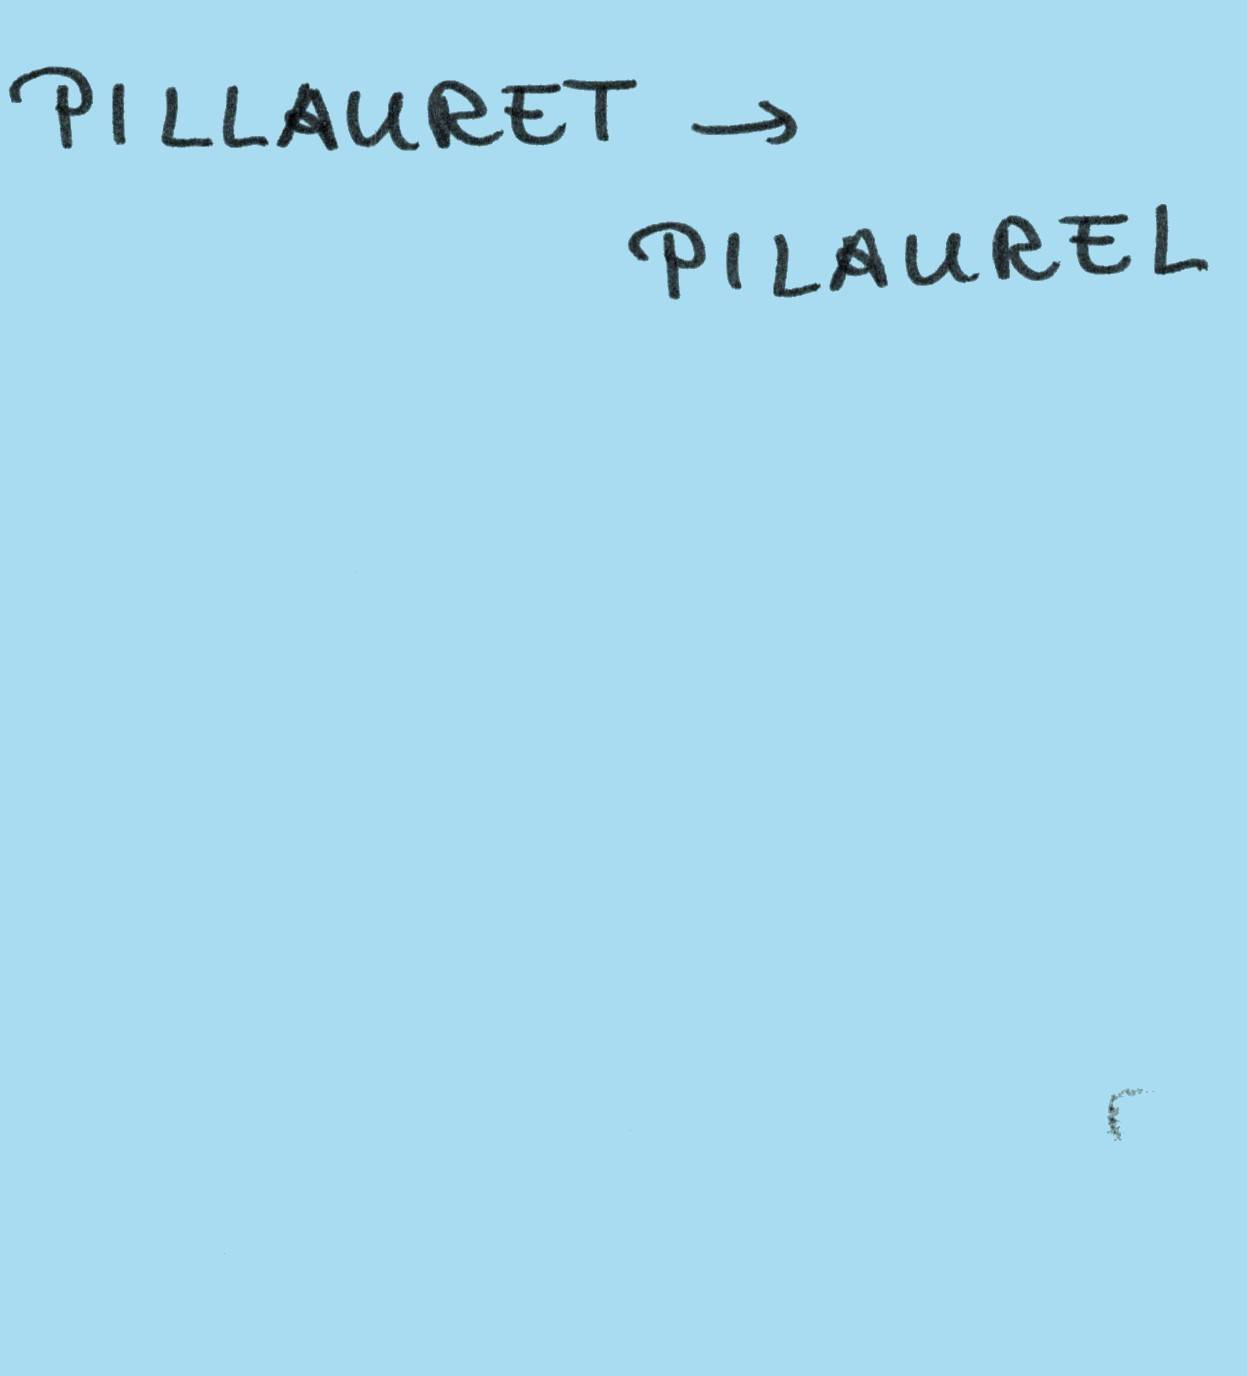 PILLAURET →
PILAUREL